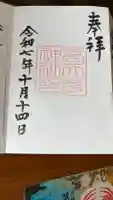 奉拝
令和七年十月十四日